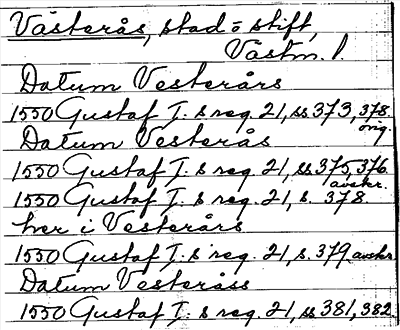 Västerås, stad o stift,
Västm. l.
Datum Vesterårs
1550 Gustaf I. s reg. 21, ss 373, 378 orig.
Datum Vesterås
1550 Gustaf I. s reg. 21, ss 375, 376 avskr.
1550 Gustaf I. s reg. 21, s. 378
her i Vesterårs
1550 Gustaf I. s reg. 21, s. 379 avskr
Datum Vesteråss
1550 Gustaf I. s reg. 21, ss 381, 382